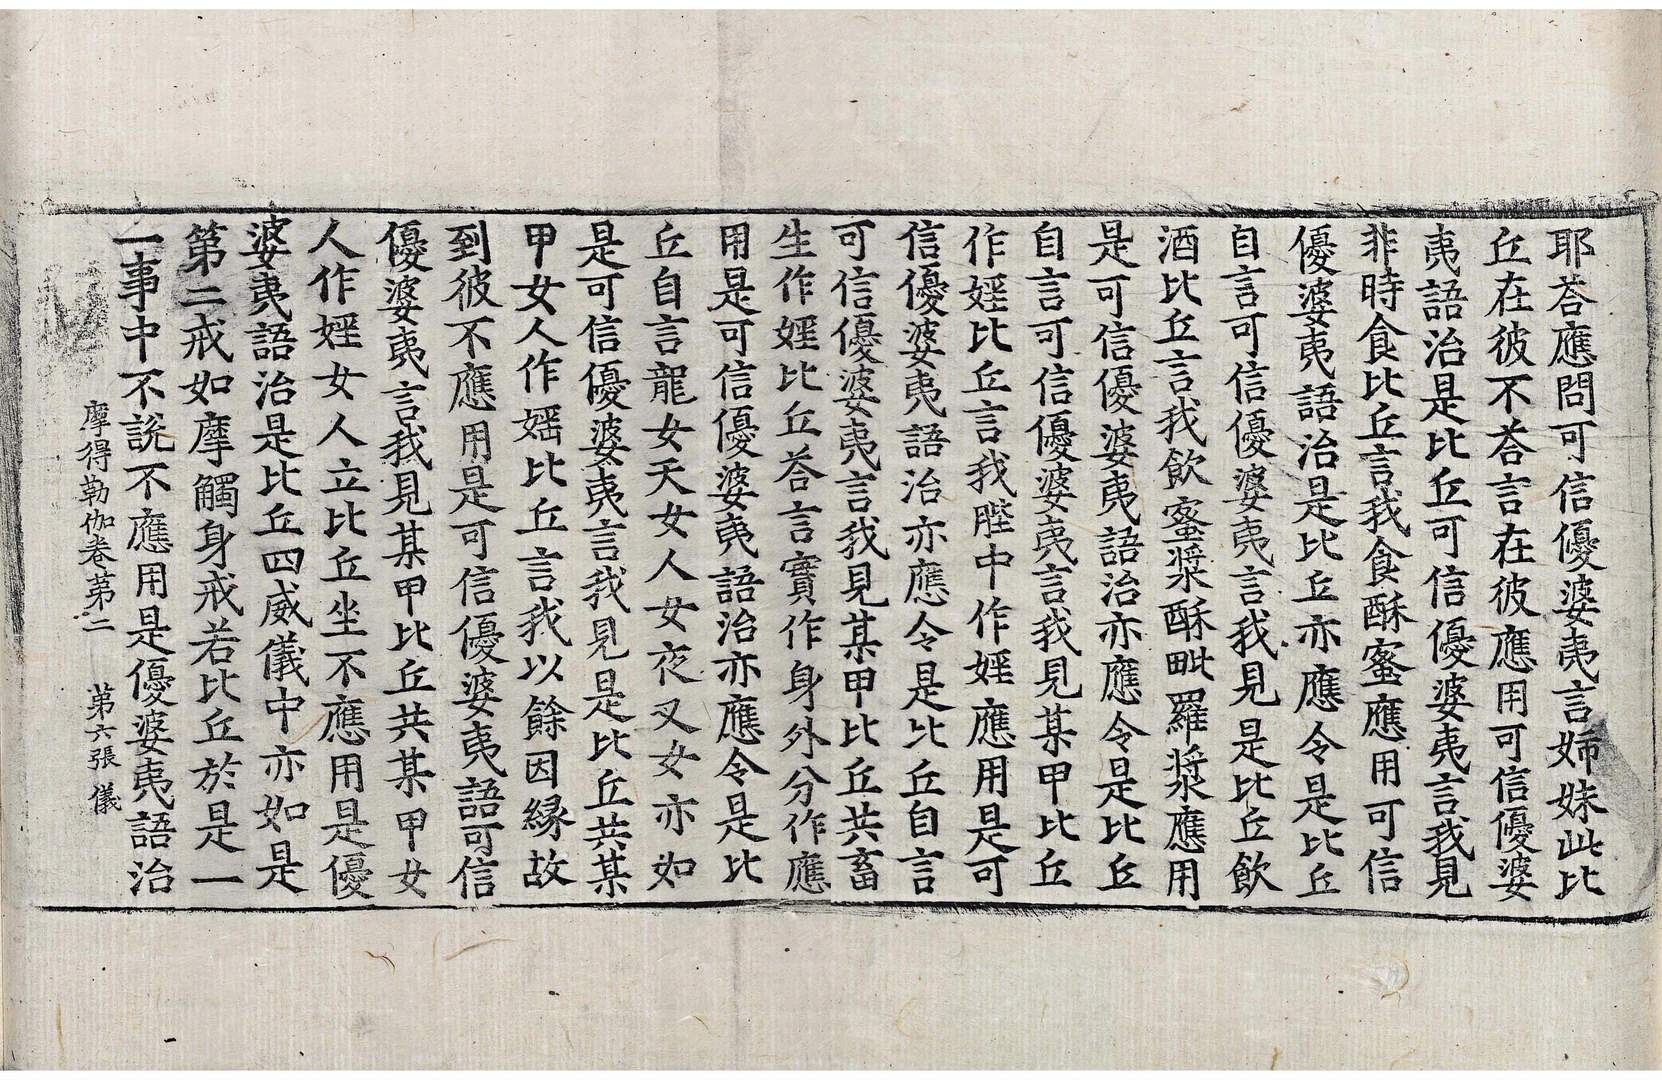 耶荅應問可信優婆夷言姉妹此比
丘在彼不荅言在彼應用可信優婆
夷語治是比丘可信優婆夷言我見
非時食比丘言我食酥蜜應用可信
優婆夷語治是比丘亦應令是比丘
自言可信優婆夷言我見是比丘飲
酒比丘言我飲蜜漿酥毗羅漿應用
是可信優婆夷語治亦應令是比丘
自言可信優婆夷言我見某甲比丘
作婬比丘言我䏶中作婬應用是可
信優婆夷語治亦應令是比丘自言
可信優婆夷言我見某甲比丘共畜
生作婬比丘荅言實作身外分作應
用是可信優婆夷語治亦應令是比
丘自言龍女天女人女夜叉女亦如
是可信優婆夷言我見是比丘共某
甲女人作婬比丘言我以餘因緣故
到彼不應用是可信優婆夷語可信
優婆夷言我見某甲比丘共某甲女
人作婬女人立比丘坐不應用是優
婆夷語治是比丘四威儀中亦如是
第二戒如摩觸身戒若比丘於是一
一事中不說不應用是優婆夷語治
摩得勒伽卷第二 第六張 儀